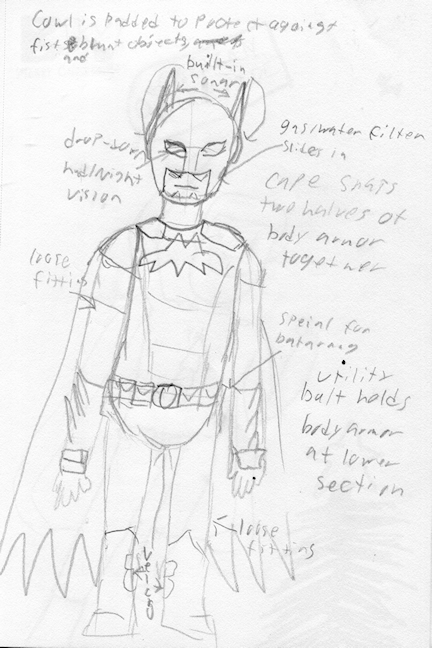 Cowl is padded to protect against
fist & blunt objects
and
built-in
sonar
drop-down
hud/night
vision
gas/water filter
slides in
cape snaps
two halves of
body armor
together
loose
fitting
speial for
batarang
utility
balt holds
body armor
at lower
section
loose
fitting
velcro